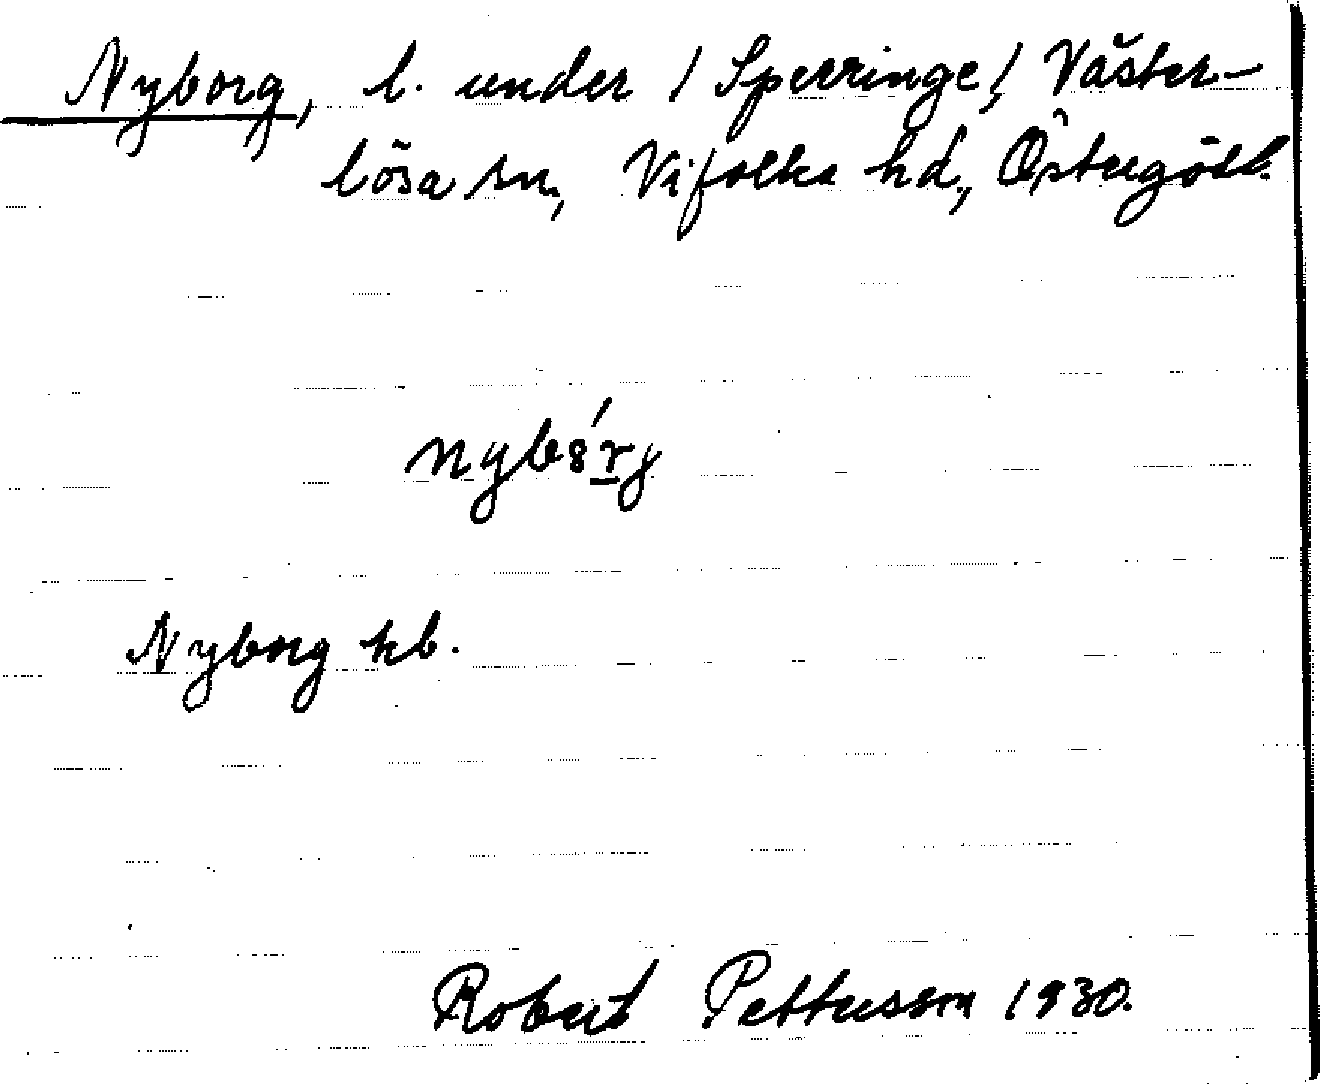 Nyborg, l. under / Sperringe / Väster-
lösa sn, Vifolka hd, Östergötl.
nybó̱rj
Nyborg hb.
Robert Pettersson 1930.